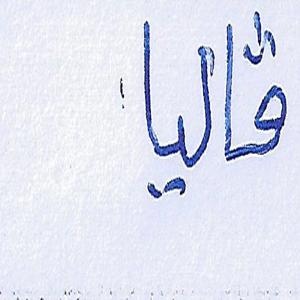 ڤاليا